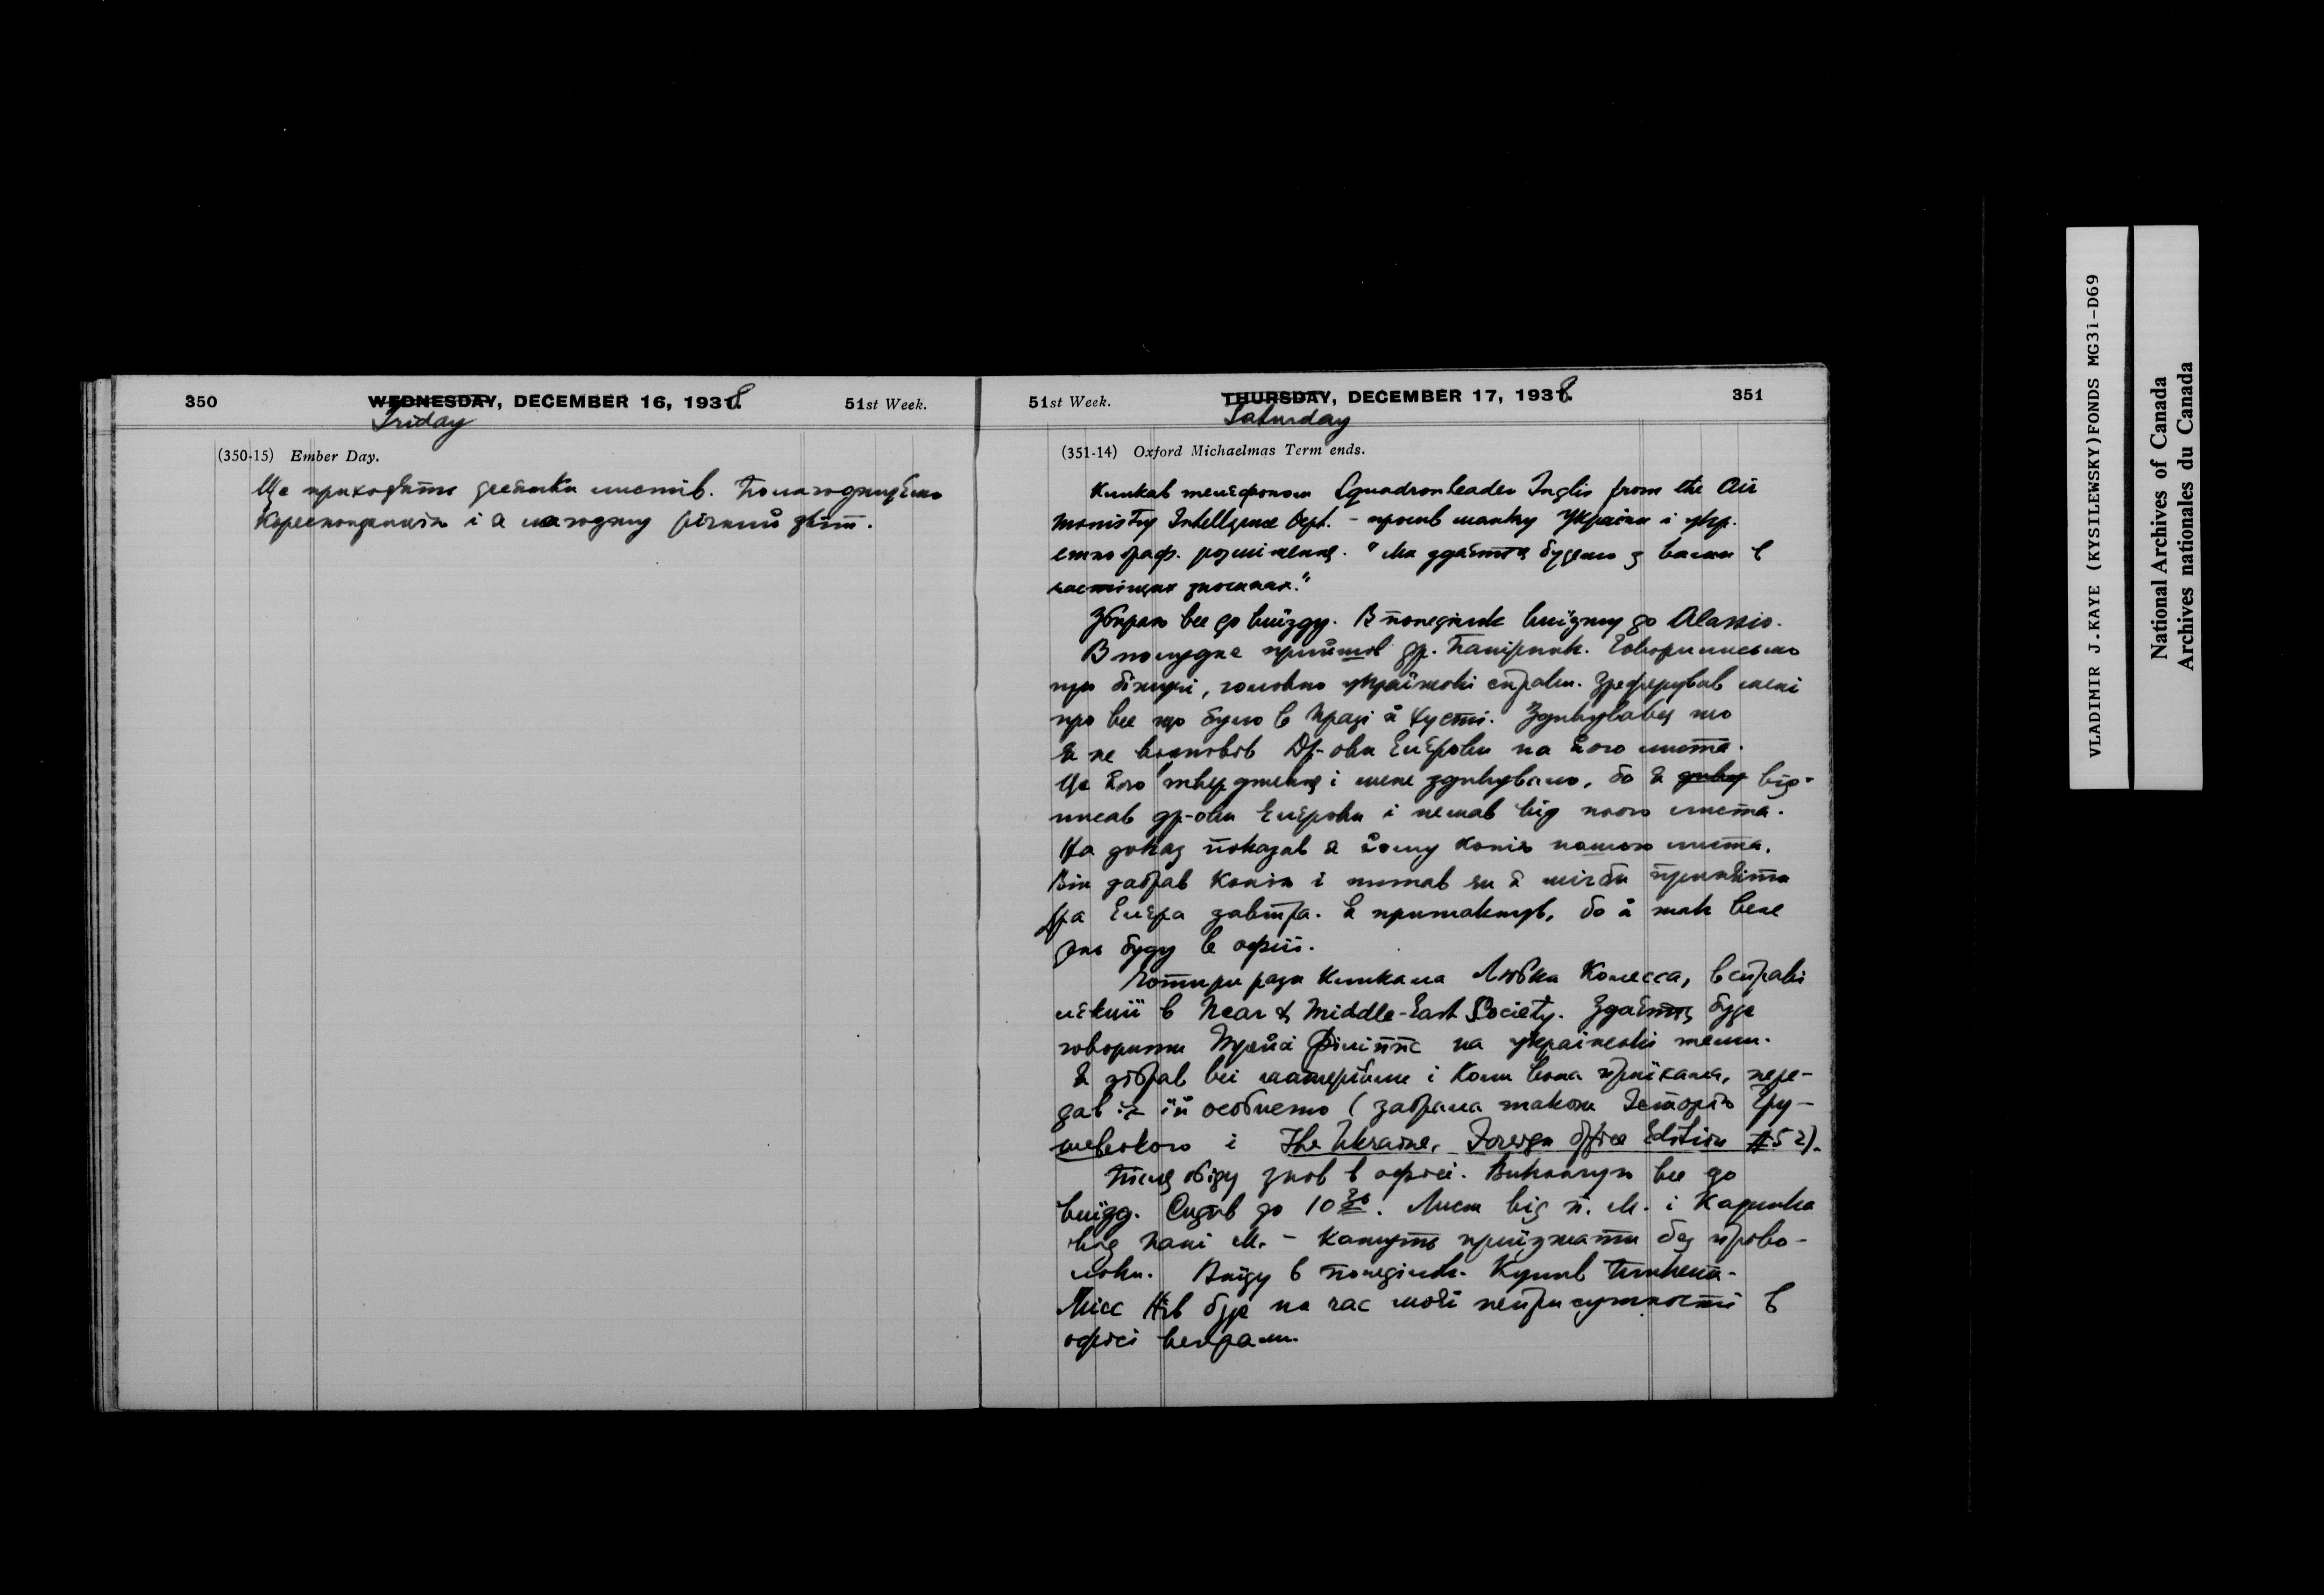 350 WEDNESDAY, DECEMBER 16, 1938. 51st Week.
Friday
(350-15) Ember Day.
Ще приходять десятки листів. Полагоджуємо
кореспонденцію і я лагоджу річний звіт.
51st Week. THURSDAY, DECEMBER 17, 1938. 351
Saturday
(351-14) Oxford Michaelmas Term ends.
Кликав телєфоном Squadronleader Inglis from the Air
Ministry Intelligence Dept. - просив мапку України і укр.
етнограф. розміщення. "Ми здається будемо з вами в
частіших зносинах."
Збираю все до виїзду. В понеділок виїзжу до Alassio.
В полудне прийшов др. Панірник. Говорилисьмо
про біжучі, головно українські справи. Зреферував мені
про все що було в Празі й Хусті. Здивувався що
я не відповів Др-ови на його листа.
Це його твердження і мене здивувало, бо я від-
писав др-ови і немав від нього листа.
На доказ показав я йому копію нашого листа.
Він забрав копію і питав чи я міг би прийняти
Дра завтра. Я притакнув, бо й так весь
день буду в офісі.
Чотири рази кликала Любка Колесса, в справі
лєкції в Near & Middle-East Society. Здається буде
говорити Філіппс на українські теми.
Я зібрав всі матеріяли і коли вона приїхала, пере-
дав їх їй особисто (забрала також Історію Гру-
шевського і The Ukraine, Foreign Office Edition #52).
Після обіду знов в офісі. Викінчую все до
виїзду. Сидів до 10 30. Лист від п. М. і Картка
від пані М. - кажуть приїзжати без прово-
локи. Виїду в понеділок. Купив тикета.
Місс буде на час моєї неприсутности в
офісі вечорами.
VLADIMIR J.KAYE (KYSILEWSKY)FONDS MG31-D69
National Archives of Canada
Archives nationales du Canada